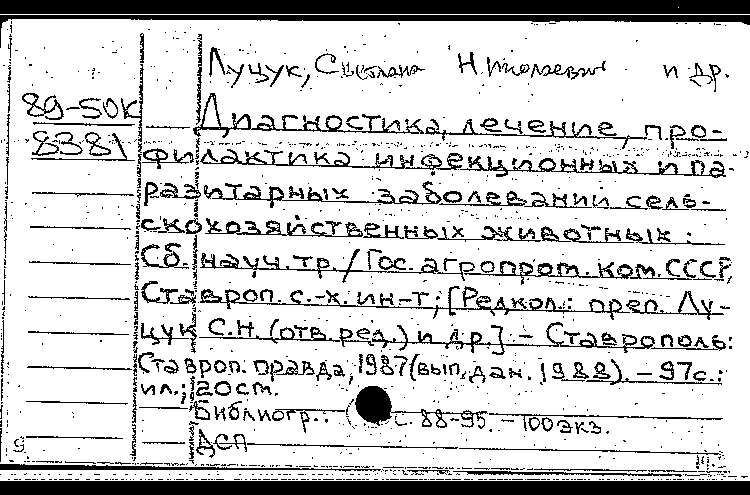 Луцук, Светлана Николаевна и др.
89-50К
8381
Диагностика, лечение, про-
филактика инфекционных и па-
разитарных заболеваний сель-
скохозяйственных животных:
Сб. науч. тр. / Гос. агропром. ком. СССР,
Ставроп. с.-х. ин-т; [Редкол.: преп. Лу-
цук С.Н. (отв. ред.) и др.] - Ставрополь:
Ставроп. правда, 1987 (вып. дан. 1988). - 97 с.:
ил.; 20 см.
Библиогр.: с. 88-95. - 100 экз.
ДСП